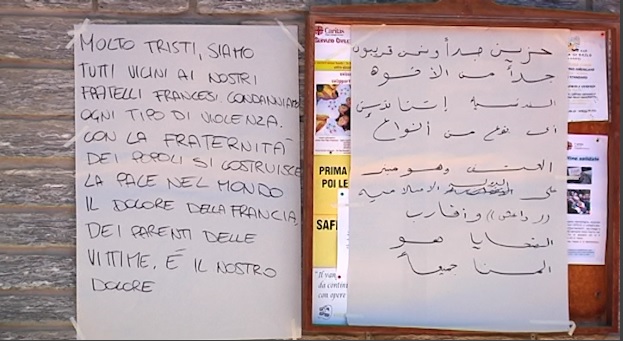 MOLTO TRISTI, SIAMO
TUTTI VICINI AI NOSTRI
FRATELLI FRANCESI CONDANNIAMO
OGNI TIPO DI VIOLENZA.
CON LA FRATERNITÁ
DEI POPOLI SI COSTRUISCE
LA PACE NEL MONDO
IL DOLORE DELLA FRANCIA,
DEI PARENTI DELLE
VITTIME. É IL NOSTRO
DOLORE
Caritas
SERVIZIO CIVILE
PRIMA
POI LE
SAF
"Il van
da contin
con opere
حزينين جداً ونحن قريبون
جداً من الأخوة
أي نوع من أنواع
العنف وهو
على الإسلامية
((داعش)) وأقارب
الضحايا هو
ألمنا جميعاً